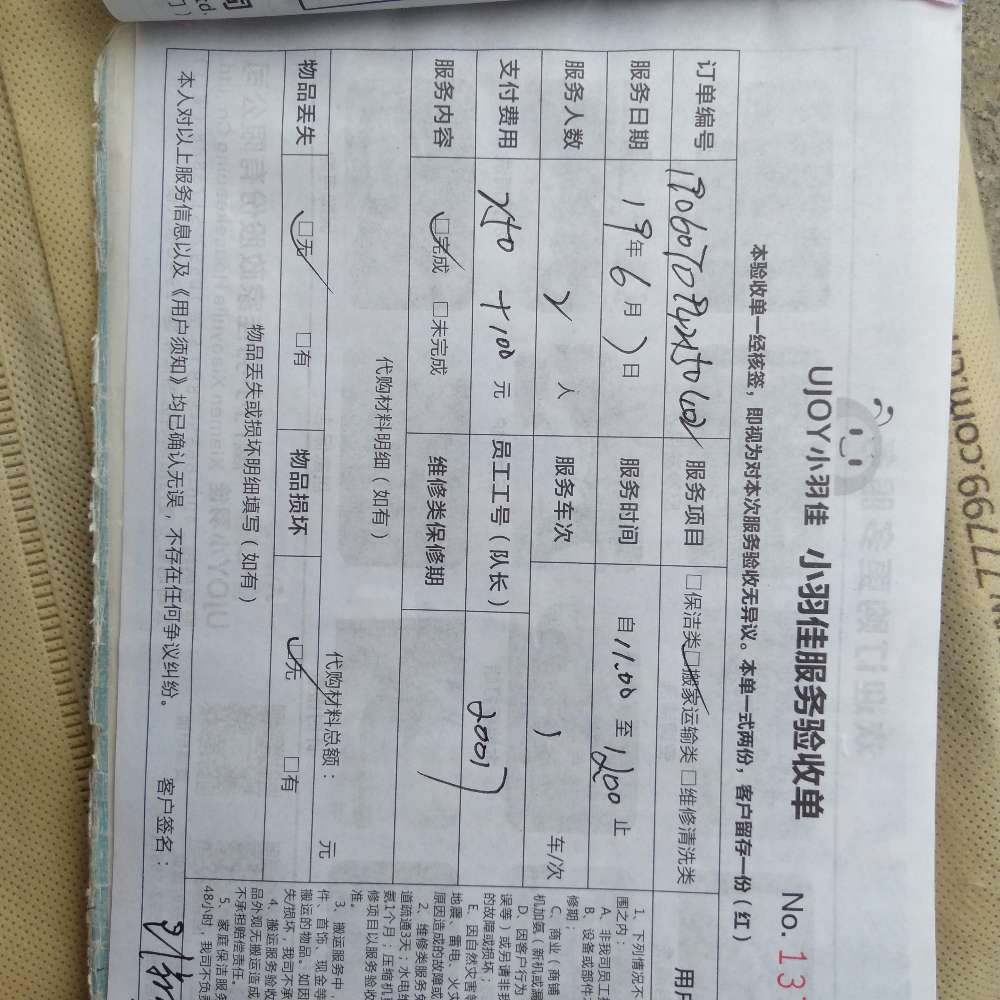 UJOY小羽佳 小羽佳服务验收单 No. 13
本验收单一经核签，即视为对本次服务验收无异议。本单一式两份，客户留存一份（红）
订单编号 服务项目 □保洁类 □搬家运输类 □维修清洗类
服务日期 19年6月 日 服务时间 自11.00至1200止
服务人数 2人 服务车次 1 车/次
支付费用 +100 元 员工工号（队长） 2007
服务内容 □完成 □未完成 维修类保修期
代购材料明细（如有） 代购材料总额： 元
物品丢失 □无 □有 物品损坏 □无 □有
物品丢失或损坏明细填写（如有）
本人对以上服务信息以及《用户须知》均已确认无误，不存在任何争议纠纷。 客户签名：
用户
1、下列情况不
围之内：
A、非我司员工操
B、设备或部件
修期；
C、商业（商铺
机加氨（新机或漏
D、因客户行为
误等）或另请非我
的故障或损坏；
E、因自然灾害等
地震、雷电、火灾
原因造成的故障或
2、维修类服务免
道疏通3天；水电维
氨1个月；压缩机更
修项目以服务验收
准。
3、搬运服务中，
件、首饰、现金等
搬运的物品。如因
失/损坏，我司不承
4、搬运服务验收
品外观无搬运造成
不承担赔偿责任。
5、家庭保洁服务
48小时，我司不负责
7799.com